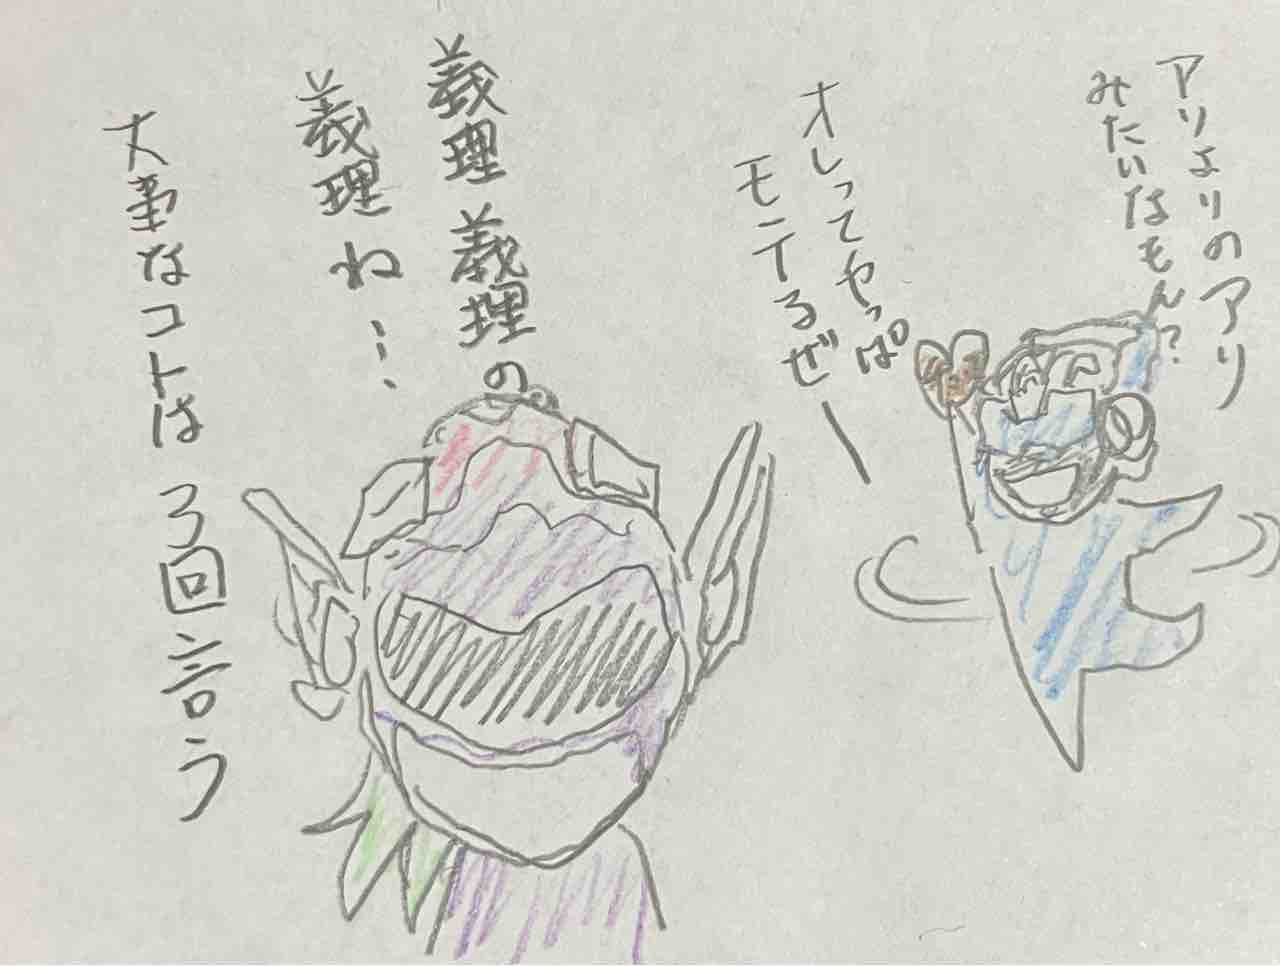 アリよりのアリ
みたいなもん?
オレってやっぱ
モテるぜー
義理義理の
義理ね…
大事なコトは3回言う